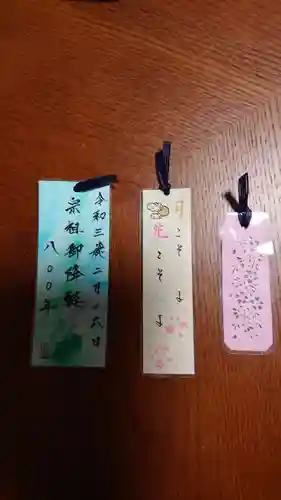 令和三歳二月十六日
宗祖御降誕
八〇〇年
月こそよ
花こそよ